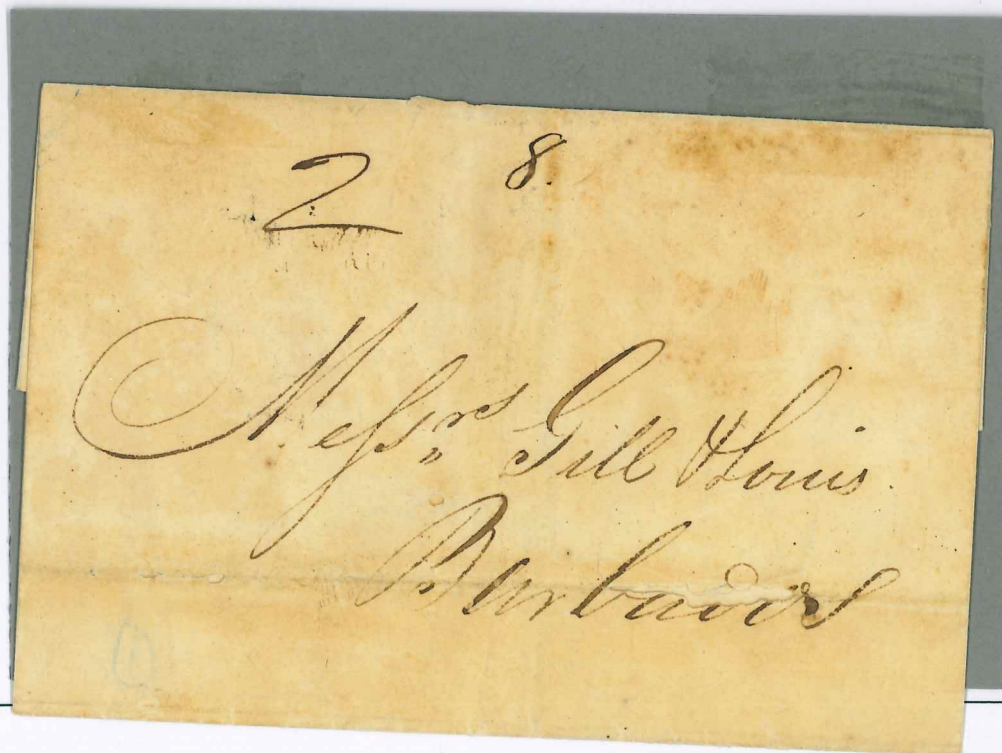 2 8.
Messrs Gill & Louis
Barbados